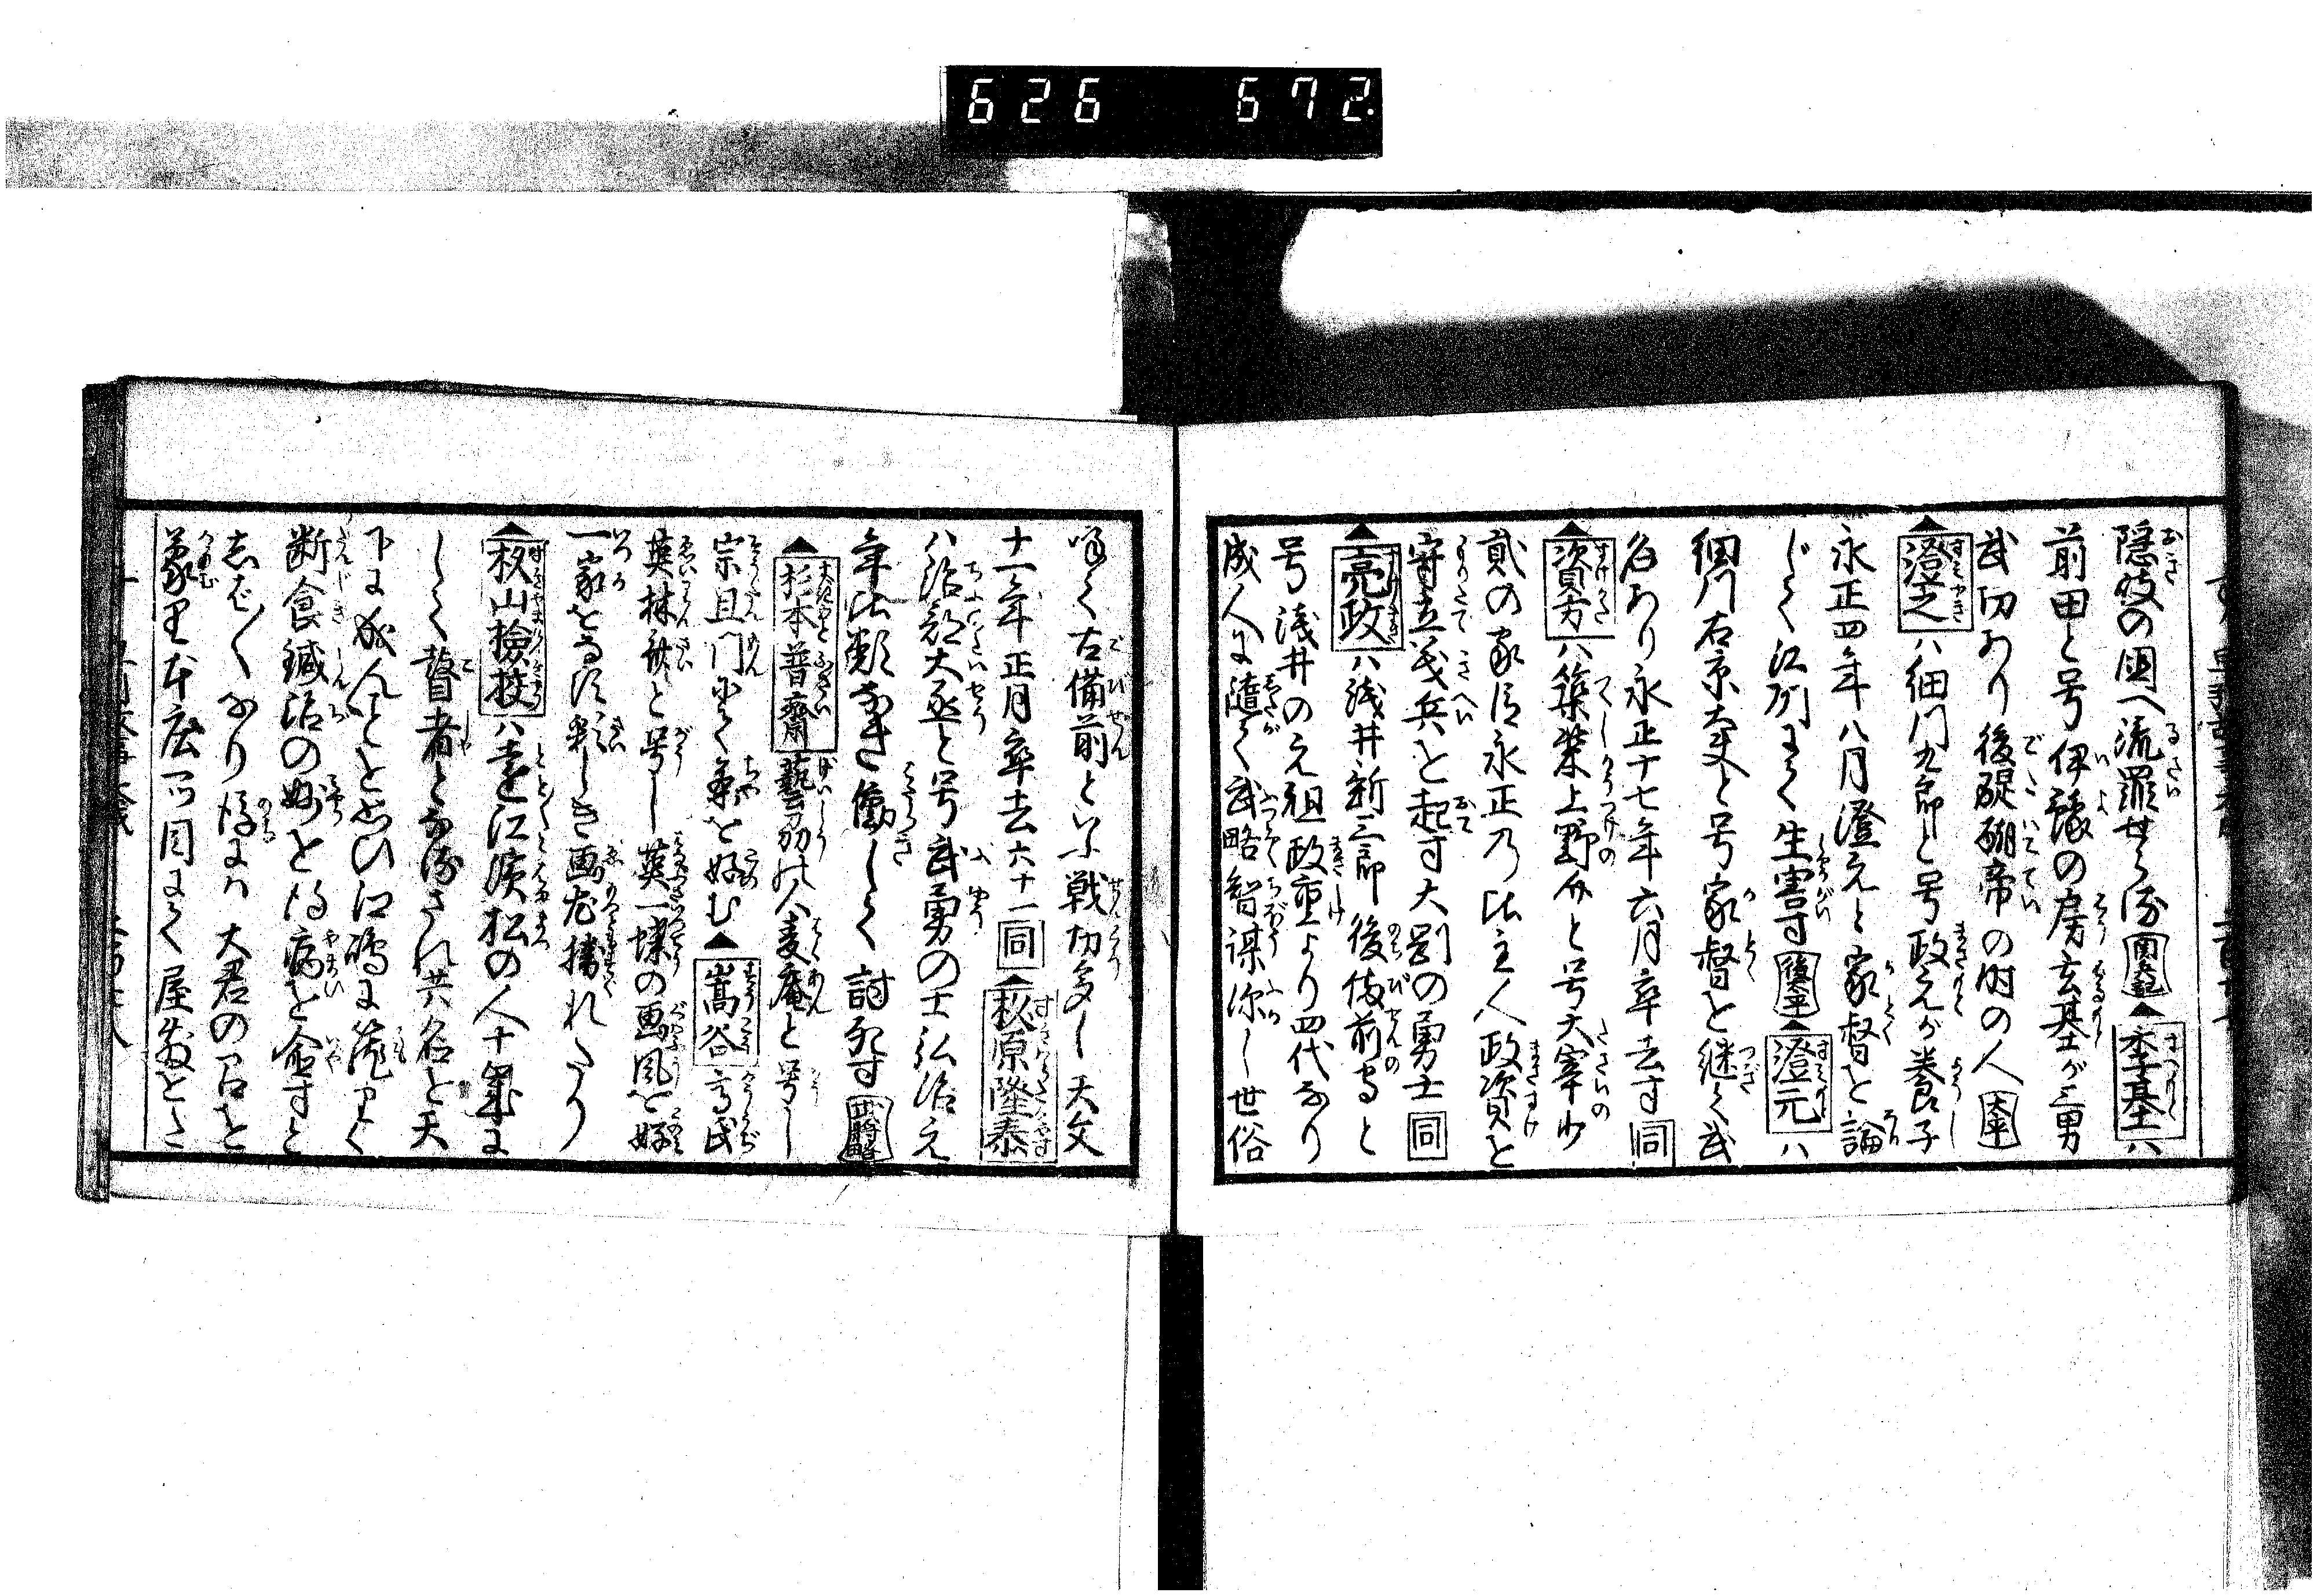 626 672
隠岐の国へ流罪せら 季基ハ
前田と号伊豫の房玄基が三男
武功あり後醍醐帝の時の人
澄之ハ細川九郎と号政元が養子
永正四年八月澄元と家督を論
じて江州にて生害す 澄元ハ
細川右京大夫と号家督を継て武
名あり永正十七年六月卒去す 同
資方ハ築葉上野介と号太宰少
貳の家臣永正乃比主人政資と
守立義兵を起す大剛の勇士 同
亮政ハ浅井新三郎後備前守と
号浅井の元祖政重より四代なり
成人に隨て武略智謀深し世俗
呼て古備前といふ戦功多し天文
十一年正月卒去六十一 同 杉原隆泰
ハ治部大丞と号武勇の士弘治元
年比類なき働して討死す
杉本普齋 藝州の人麦庵と号し
宗旦門にて茶を好む 嵩谷 高氏
英林齋と号し英一蝶の画風を好
一家をなす彩しき画尤勝れたり
杉山檢挍ハ遠江濱松の人十歳に
して瞽者となされ共名を天
下に成んことを思ひ江嶋に篭りて
断食鍼治の妙を得病を愈すこと
しば〳〵なり後にハ大君の召を
蒙り本庄一ツ目にて屋敷をた